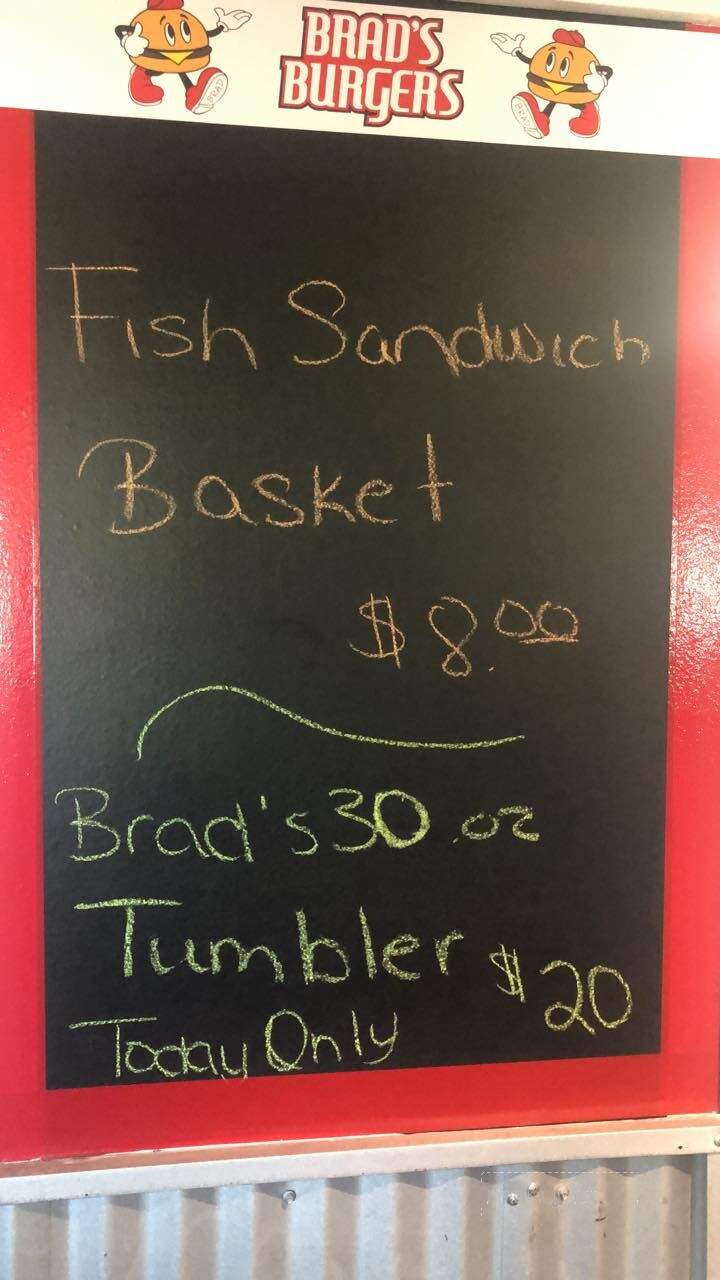 BRAD'S
BURGERS
BRAD
BRAD
Fish Sandwich
Basket
$8.00
Brad's 30 oz
Tumbler $20
Today Only